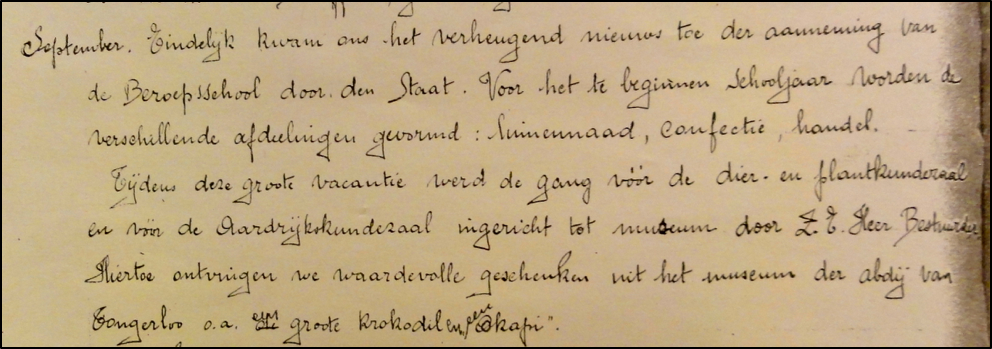 September. Eindelijk kwam ons het verheugend nieuws toe der aanneming van
de Beroepsschool door den Staat. Voor het te beginnen schooljaar worden de
verschillende afdeelingen gevormd : linnennaad, confectie, handel.
Tijdens deze groote vacantie werd de gang vóór de dier- en plantkundezaal
en vóór de Aardrijkskundezaal ingericht tot museum door Z. E. Heer Bestuurder.
Hiertoe ontvingen we waardevolle geschenken uit het museum der abdij van
Tongerloo o.a. een groote krokodil en een "Okapi".